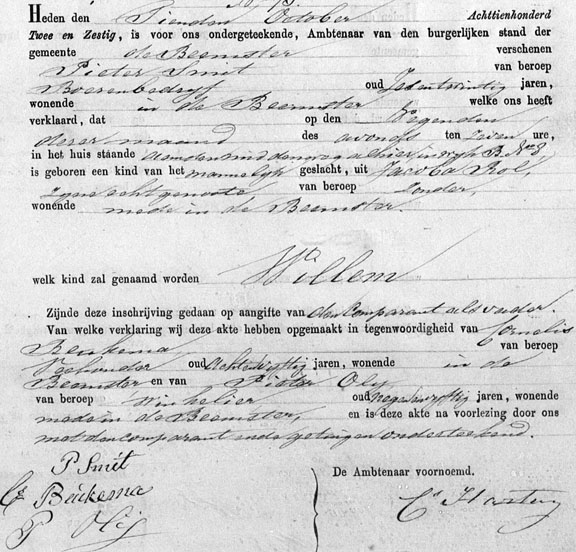 Heden den Tienden October Achttienhonderd
Twee en Zestig, is voor ons ondergeteekende, Ambtenaar van den burgerlijken stand der
gemeente de Beemster verschenen
Pieter Smit van beroep
Boerenbedryf oud jaren,
wonende in de Beemster welke ons heeft
verklaard, dat op den Negenden
dezer maand des avonds ten Zeven ure,
in het huis staande aan den Middenweg alhier in wyk B. No 8,
is geboren een kind van het mannelyk geslacht, uit Jacoba Rol,
Zyne echtgenoote van beroep Zonder,
wonende mede in de Beemster.
welk kind zal genaamd worden Willem
Zijnde deze inschrijving gedaan op aangifte van den Comparant als vader.
Van welke verklaring wij deze akte hebben opgemaakt in tegenwoordigheid van Cornelis
Beukema, van beroep
Veehouder oud Achtenvyftig jaren, wonende in de
Beemster en van Pieter Oly
van beroep Winkelier oud negenenvyftig jaren, wonende
mede in de Beemster, en is deze akte na voorlezing door ons
met den comparant en de getuigen onderteekend.
P Smit
Cs Beukema
P Olij
De Ambtenaar voornoemd.